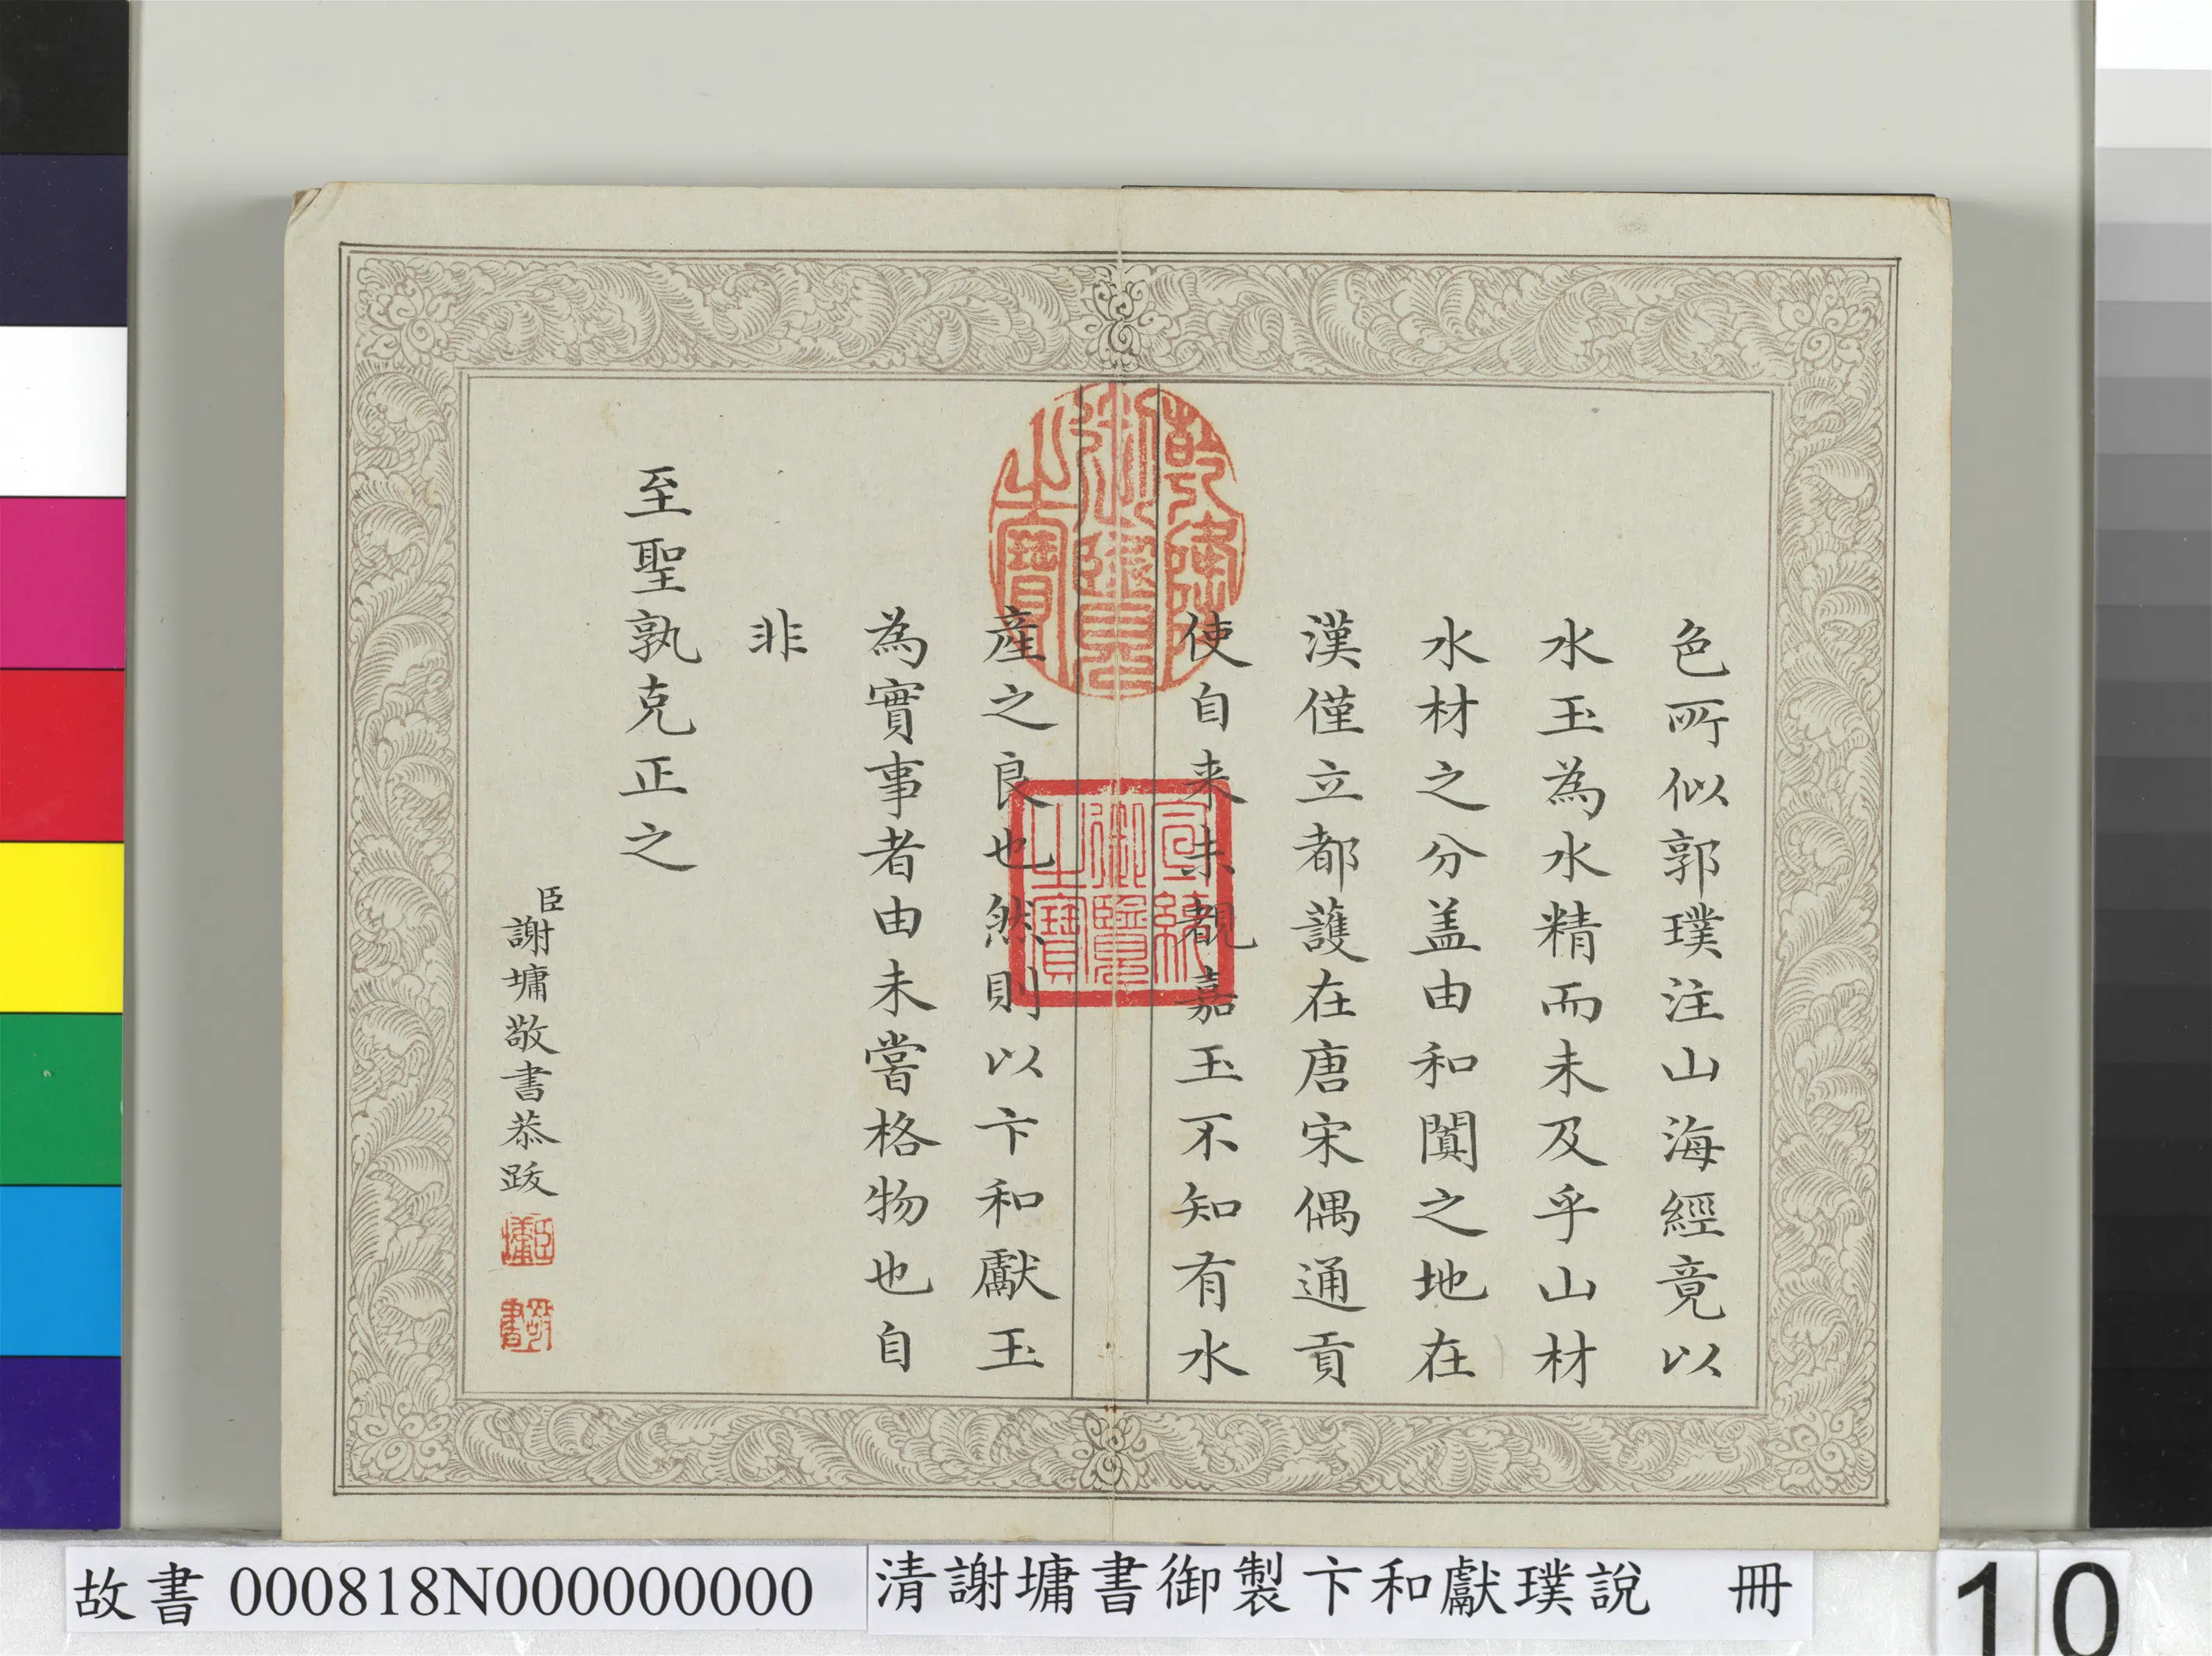 色所似郭璞注山海經竟以
水玉為水精而未及乎山材
水材之分盖由和闐之地在
漢僅立都護在唐宋偶通貢
使自来未覩嘉玉不知有水
產之良也然則以卞和獻玉
為實事者由未嘗格物也自
非
至聖孰克正之
臣謝墉敬書恭跋
乾隆御覽之寶
宣統御覽之寶
臣墉
敬書
故書000818N000000000
清謝墉書御製卞和獻璞說 冊
10